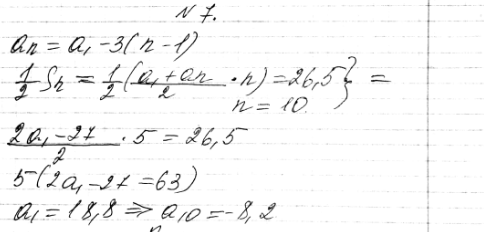 N 7.
an = a₁ - 3(n - 1)
½ Sn = ½ (a₁ + an / 2 · n) = 26,5 } =
n = 10.
2a₁ - 27 / 2 · 5 = 26,5
5(2a₁ - 27 = 63)
a₁ = 18,8 ⇒ a₁₀ = -8,2